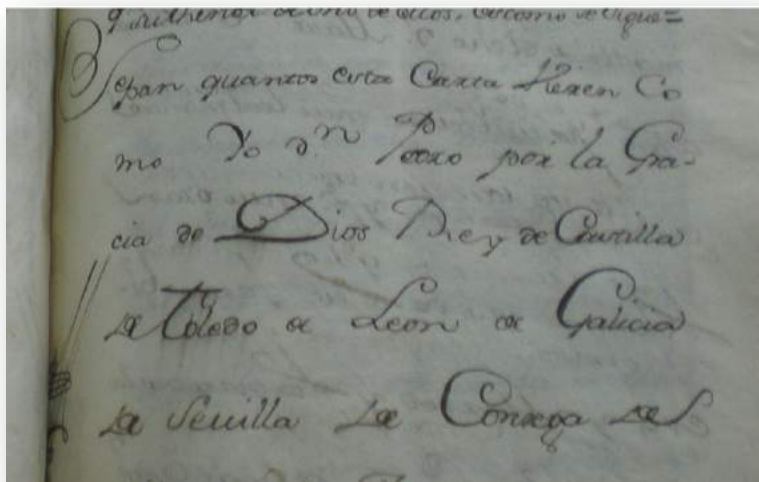 de ellos, es como se sigue=
Sepan quantos esta Carta vieren Co
mo Yo dn Pedro por la Gra-
cia de Dios Rey de Castilla
de Toledo de Leon de Galicia
de Seuilla de Cordoba de